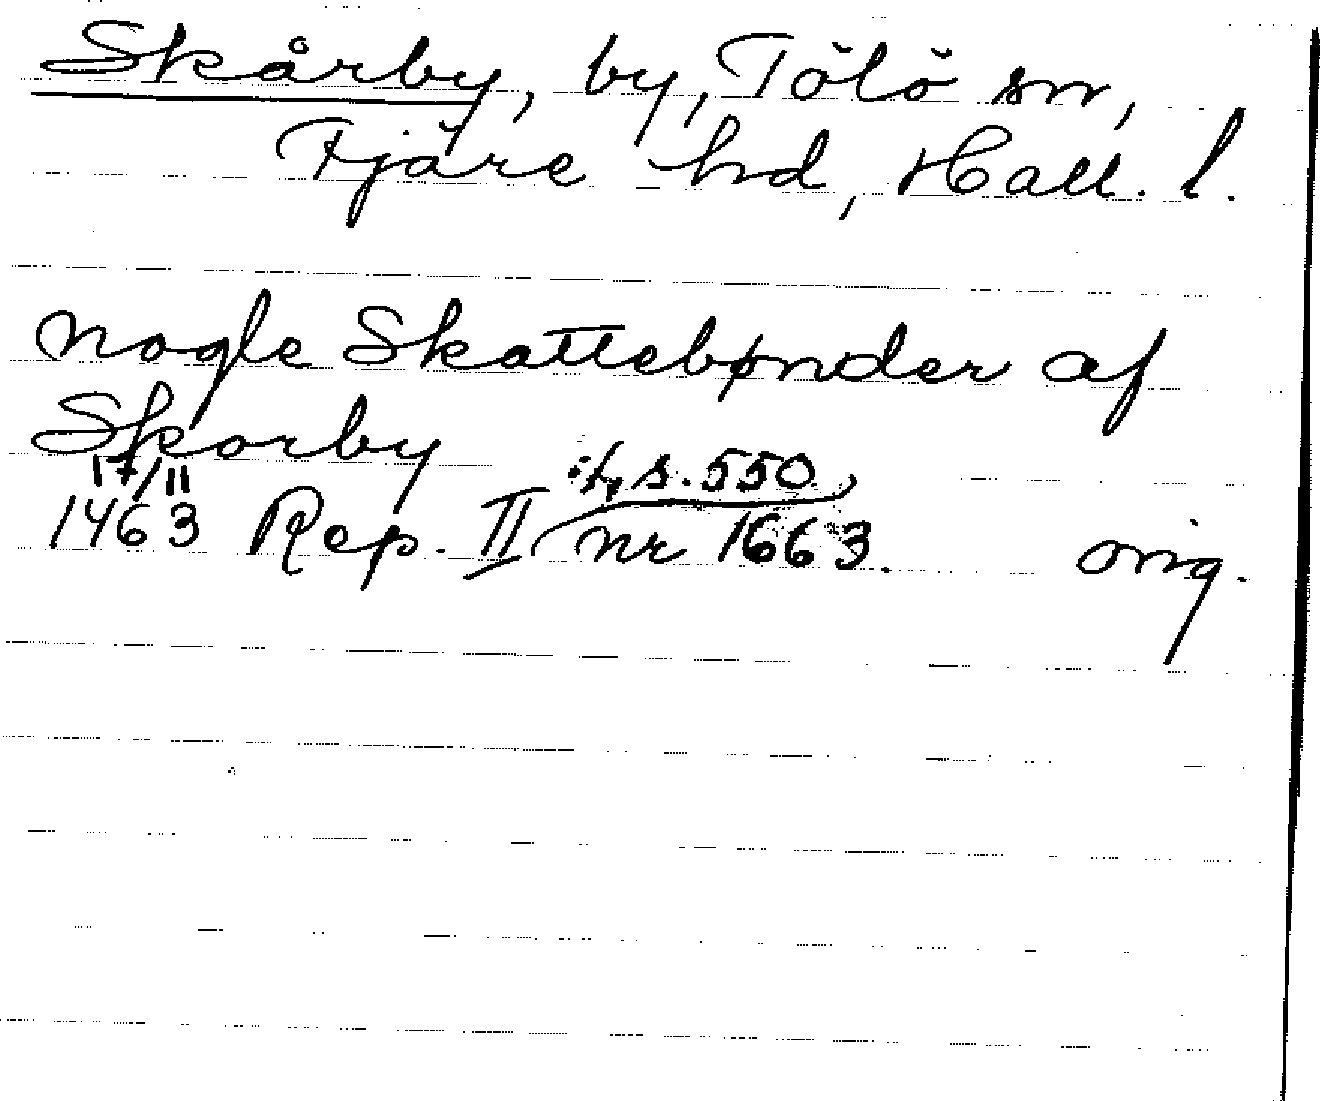 Skårby, by, Tölö sn,
Fjäre hd, Hall. l.
nogle Skattebønder af
Skorby
17/11 :1, s. 550,
1463 Rep. II nr 1663. orig.